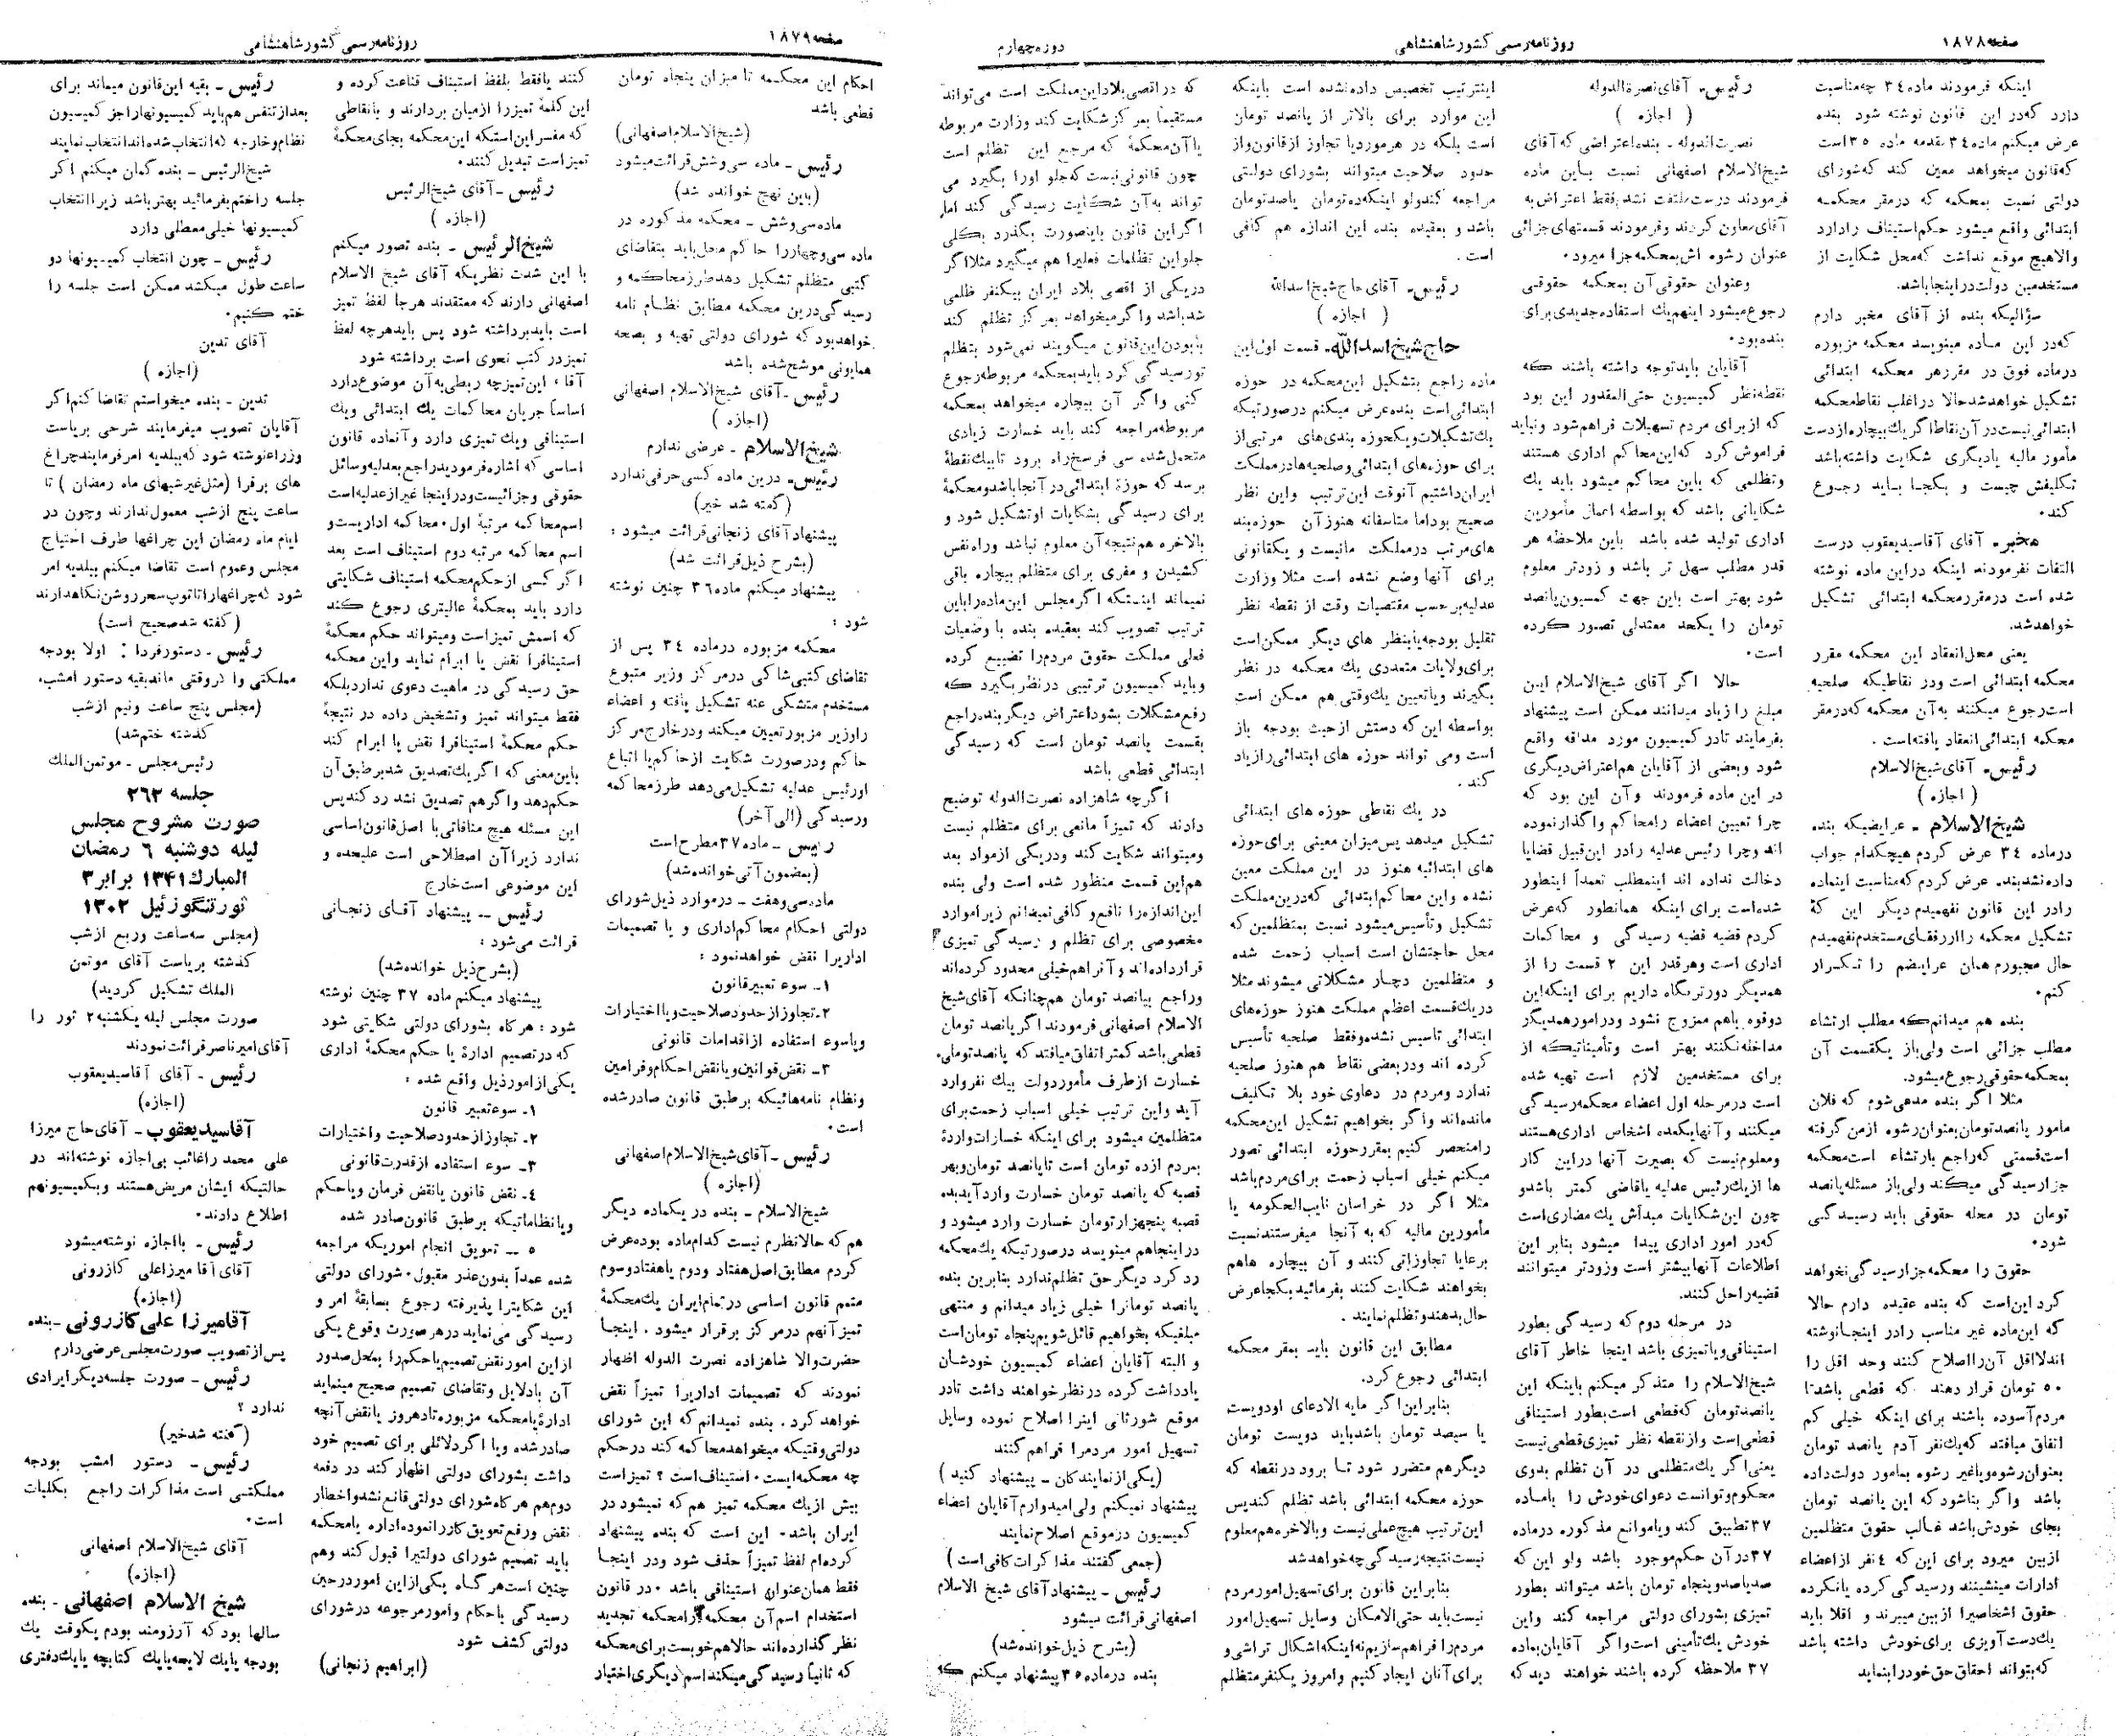 صفحه ۱۸۷۸
روزنامه رسمی کشور شاهنشاهی
دوره چهارم
اینکه فرمودند ماده ۳۴ چه مناسبت
دارد که در این قانون نوشته شود بنده
عرض میکنم ماده ۳۴ مقدمه ماده ۳۵ است
که قانون میخواهد معین کند که شورای
دولتی نسبت بمحکمه که در مقر محکمه
ابتدائی واقع میشود حکم استیناف را دارد
والا هیچ موقع نداشت که محل شکایت از
مستخدمین دولت در اینجا باشد.
سؤالیکه بنده از آقای مخبر دارم
که در این ماده مینویسد محکمه مزبوره
در ماده فوق در مقر هر محکمه ابتدائی
تشکیل خواهد شد حالا در اغلب نقاط محکمه
ابتدائی نیست در آن نقاط اگر یک بیچاره از دست
مأمور مالیه یا دیگری شکایت داشته باشد
تکلیفش چیست و بکجا باید رجوع
کند.
مخبر - آقای آقا سید یعقوب درست
التفات نفرمودند اینکه در این ماده نوشته
شده است در مقر محکمه ابتدائی تشکیل
خواهد شد.
یعنی محل انعقاد این محکمه مقرر
محکمه ابتدائی است و در نقاطیکه صلحیه
است رجوع میکنند به آن محکمه که در مقر
محکمه ابتدائی انعقاد یافته است.
رئیس - آقای شیخ الاسلام
(اجازه)
شیخ الاسلام - عرایضیکه بنده
در ماده ۳۴ عرض کردم هیچکدام جواب
داده نشد بنده عرض کردم که مناسبت اینماده
را در این قانون نفهمیدم دیگر این که
تشکیل محکمه را از رفقای مستخدم نفهمیدم
حال مجبورم همان عرایضم را تکرار
کنم.
بنده هم میدانم که مطلب ارتشاء
مطلب جزائی است ولی باز یکقسمت آن
بمحکمه حقوقی رجوع میشود.
مثلا اگر بنده مدعی شوم که فلان
مامور پانصد تومان بعنوان رشوه از من گرفته
است قسمتی که راجع بارتشاء است محکمه
جزا رسیدگی میکند ولی باز مسئله پانصد
تومان در محله حقوقی باید رسیدگی
شود.
حقوق را محکمه جزا رسیدگی نخواهد
کرد این است که بنده عقیده دارم حالا
که این ماده غیر مناسب را در اینجا نوشته
اند لااقل آن را اصلاح کنند و حد اقل را
۵۰ تومان قرار دهند که قطعی باشد تا
مردم آسوده باشند برای اینکه خیلی کم
اتفاق میافتد که یک نفر آدم پانصد تومان
بعنوان رشوه و یا غیر رشوه بمامور دولت داده
باشد واگر بنا شود که این پانصد تومان
بجای خودش باشد غالب حقوق متظلمین
از بین میرود برای این که ۴ نفر از اعضاء
ادارات مینشینند و رسیدگی کرده یا نکرده
حقوق اشخاصیرا از بین میبرند و اقلا باید
یک دست آویزی برای خودش داشته باشد
که بتواند احقاق حق خود را بنماید
رئیس - آقای نصرة الدوله
(اجازه)
نصرت الدوله - بنده اعتراضی که آقای
شیخ الاسلام اصفهانی نسبت باین ماده
فرمودند درست ملتفت نشدم فقط اعتراض به
آقای معاون کردند و فرمودند قسمتهای جزائی
عنوان رشوه اش بمحکمه جزا میرود.
و عنوان حقوقی آن بمحکمه حقوقی
رجوع میشود اینهم یک استفاده جدیدی برای
بنده بود.
آقایان باید توجه داشته باشند که
نقطه نظر کمیسیون حتی المقدور این بود
که از برای مردم تسهیلات فراهم شود و نباید
فراموش کرد که این محاکم اداری هستند
و تظلمی که باین محاکم میشود باید یک
شکایاتی باشد که بواسطه اعمال مأمورین
اداری تولید شده باشد باین ملاحظه هر
قدر مطلب سهل تر باشد و زودتر معلوم
شود بهتر است باین جهت کمسیون پانصد
تومان را یکحد معتدلی تصور کرده
است.
حالا اگر آقای شیخ الاسلام این
مبلغ را زیاد میدانند ممکن است پیشنهاد
بفرمایند تا در کمیسیون مورد مداقه واقع
شود و بعضی از آقایان هم اعتراض دیگری
در این ماده فرمودند و آن این بود که
چرا تعیین اعضاء را محاکم واگذار نموده
اند و چرا رئیس عدلیه را در این قبیل قضایا
دخالت نداده اند اینمطلب تعمداً اینطور
شده است برای اینکه همانطور که عرض
کردم قضیه قضیه رسیدگی و محاکمات
اداری است و هر قدر این ۲ قسمت را از
همدیگر دورتر نگاه داریم برای اینکه این
دو قوه باهم ممزوج نشود و در امور همدیگر
مداخله نکنند بهتر است و تأمیناتیکه از
برای مستخدمین لازم است تهیه شده
است در مرحله اول اعضاء محکمه رسیدگی
میکنند و آنها یکعده اشخاص اداری هستند
و معلوم نیست که بصیرت آنها در این کار
ها از یک رئیس عدلیه یا قاضی کمتر باشد و
چون این شکایات مبدأش یک مضاری است
که در امور اداری پیدا میشود بنابر این
اطلاعات آنها بیشتر است و زودتر میتوانند
قضیه را حل کنند.
در مرحله دوم که رسیدگی بطور
استینافی و یا تمیزی باشد اینجا خاطر آقای
شیخ الاسلام را متذکر میکنم باینکه این
پانصد تومان که قطعی است بطور استینافی
قطعی است و از نقطه نظر تمیزی قطعی نیست
یعنی اگر یک متظلمی در آن تظلم بدوی
محکوم و توانست دعوای خودش را با ماده
۳۷ تطبیق کند و یا موانع مذکوره در ماده
۳۷ در آن حکم موجود باشد ولو این که
صد یا صد و پنجاه تومان باشد میتواند بطور
تمیزی بشورای دولتی مراجعه کند و این
خودش یک تأمینی است و اگر آقایان بماده
۳۷ ملاحظه کرده باشند خواهند دید که
اینترتیب تخصیص داده نشده است باینکه
این موارد برای بالاتر از پانصد تومان
است بلکه در هر مورد یا تجاوز از قانون و از
حدود صلاحیت میتواند بشورای دولتی
مراجعه کند ولو اینکه ده تومان یا صد تومان
باشد و بعقیده بنده این اندازه هم کافی
است.
رئیس - آقای حاج شیخ اسدالله
(اجازه)
حاج شیخ اسدالله - قسمت اول این
ماده راجع بتشکیل این محکمه در حوزه
ابتدائی است بنده عرض میکنم در صورتیکه
یک تشکیلات و یکحوزه بندی های مرتبی از
برای حوزه های ابتدائی و صلحیه ها در مملکت
ایران داشتیم آنوقت این ترتیب و این نظر
صحیح بود اما متاسفانه هنوز آن حوزه بند
های مرتب در مملکت ما نیست و یکقانونی
برای آنها وضع نشده است مثلا وزارت
عدلیه بر حسب مقتضیات وقت از نقطه نظر
تقلیل بودجه یا بنظر های دیگر ممکن است
برای ولایات متعددی یک محکمه در نظر
بگیرند و یا تعیین یک وقتی هم ممکن است
بواسطه این که دستش از حیث بودجه باز
است و می تواند حوزه های ابتدائی را زیاد
کند.
در یک نقاطی حوزه های ابتدائی
تشکیل میدهد پس میزان معینی برای حوزه
های ابتدائیه هنوز در این مملکت معین
نشده و این محاکم ابتدائی که در این مملکت
تشکیل و تأسیس میشود نسبت بمتظلمین که
محل حاجتشان است اسباب زحمت شده
و متظلمین دچار مشکلاتی میشوند مثلا
در یک قسمت اعظم مملکت هنوز حوزه های
ابتدائی تاسیس نشده و فقط صلحیه تأسیس
کرده اند و در بعضی نقاط هم هنوز صلحیه
ندارد و مردم در دعاوی خود بلا تکلیف
مانده اند و اگر بخواهیم تشکیل این محکمه
را منحصر کنیم بمقر حوزه ابتدائی تصور
میکنم خیلی اسباب زحمت برای مردم باشد
مثلا اگر در خراسان نایب الحکومه یا
مأمورین مالیه که به آنجا میفرستند نسبت
برعایا تجاوزاتی کنند و آن بیچاره هاهم
بخواهند شکایت کنند بفرمائید بکجا عرض
حال بدهند و تظلم نمایند.
مطابق این قانون باید بمقر محکمه
ابتدائی رجوع کرد.
بنابر این اگر مابه الادعای او دویست
یا سیصد تومان باشد باید دویست تومان
دیگر هم متضرر شود تا برود در نقطه که
حوزه محکمه ابتدائی باشد تظلم کند پس
این ترتیب هیچ عملی نیست و بالاخره هم معلوم
نیست نتیجه رسیدگی چه خواهد شد
بنابر این قانون برای تسهیل امور مردم
نیست باید حتی الامکان وسایل تسهیل امور
مردم را فراهم سازیم نه اینکه اشکال تراشی و
برای آنان ایجاد کنیم و امروز یکنفر متظلم
که در اقصی بلاد این مملکت است می تواند
مستقیماً بمرکز شکایت کند وزارت مربوطه
یا آن محکمهٔ که مرجع این تظلم است
چون قانونی نیست که جلو او را بگیرد می
تواند به آن شکایت رسیدگی کند اما
اگر این قانون باینصورت بگذرد بکلی
جلو این تظلمات فعلی را هم میگیرد مثلا اگر
در یکی از اقصی بلاد ایران بیکنفر ظلمی
شد باشد و اگر میخواهد بمرکز تظلم کند
با بودن این قانون میگویند نمی شود بتظلم
تو رسیدگی کرد باید بمحکمه مربوطه رجوع
کنی و اگر آن بیچاره میخواهد بمحکمه
مربوطه مراجعه کند باید خسارت زیادی
متحمل شده سی فرسخ راه برود تا بیک نقطهٔ
برسد که حوزه ابتدائی در آنجا باشد و محکمهٔ
برای رسیدگی بشکایات او تشکیل شود و
بالاخره هم نتیجه آن معلوم نباشد و راه نفس
کشیدن و مفری برای متظلم بیچاره باقی
نمیماند اینستکه اگر مجلس این ماده را باین
ترتیب تصویب کند بعقیده بنده با وضعیات
فعلی مملکت حقوق مردم را تضییع کرده
و باید کمیسیون ترتیبی در نظر بگیرد که
رفع مشکلات بشود اعتراض دیگر بنده راجع
بقسمت پانصد تومان است که رسیدگی
ابتدائی قطعی باشد
اگرچه شاهزاده نصرت الدوله توضیح
دادند که تمیزاً مانعی برای متظلم نیست
و میتواند شکایت کند و در یکی از مواد بعد
هم این قسمت منظور شده است ولی بنده
این اندازه را نافع و کافی نمیدانم زیرا موارد
مخصوصی برای تظلم و رسیدگی تمیزی
قرار داده اند و آنرا هم خیلی محدود کرده اند
و راجع بپانصد تومان همچنانکه آقای شیخ
الاسلام اصفهانی فرمودند اگر پانصد تومان
قطعی باشد کمتر اتفاق میافتد که پانصد تومان
خسارت از طرف مأمور دولت بیک نفر وارد
آید و این ترتیب خیلی اسباب زحمت برای
متظلمین میشود برای اینکه خسارات واردهٔ
بمردم از ده تومان است تا پانصد تومان و بهر
قصبه که پانصد تومان خسارت وارد آید بده
قصبه پنجهزار تومان خسارت وارد میشود و
در اینجا هم مینویسد در صورتیکه یک محکمه
رد کرد دیگر حق تظلم ندارد بنابرین بنده
پانصد تومانرا خیلی زیاد میدانم و منتهی
مبلغیکه بخواهیم قائل شویم پنجاه تومان است
و البته آقایان اعضاء کمیسیون خودشان
یادداشت کرده در نظر خواهند داشت تا در
موقع شور ثانی اینرا اصلاح نموده وسایل
تسهیل امور مردمرا فراهم کنند
(یکی از نمایندگان - پیشنهاد کنید)
پیشنهاد نمیکنم ولی امیدوارم آقایان اعضاء
کمیسیون در موقع اصلاح نمایند
(جمعی گفتند مذاکرات کافی است)
رئیس - پیشنهاد آقای شیخ الاسلام
اصفهانی قرائت میشود
(بشرح ذیل خوانده شد)
بنده در ماده ۳۵ پیشنهاد میکنم که
صفحه ۱۸۷۹
روزنامه رسمی کشور شاهنشاهی
احکام این محکمه تا میزان پنجاه تومان
قطعی باشد
(شیخ الاسلام اصفهانی)
رئیس - ماده سی و شش قرائت میشود
(باین نهج خوانده شد)
ماده سی و شش - محکمه مذکوره در
ماده سی و چهار را حاکم محل باید بتقاضای
کتبی متظلم تشکیل دهد طرز محاکمه و
رسیدگی در این محکمه مطابق نظام نامه
خواهد بود که شورای دولتی تهیه و بصحه
همایونی موشح شده باشد
رئیس - آقای شیخ الاسلام اصفهانی
(اجازه)
شیخ الاسلام - عرضی ندارم
رئیس - درین ماده کسی حرفی ندارد
(گفته شد خیر)
پیشنهاد آقای زنجانی قرائت میشود:
(بشرح ذیل قرائت شد)
پیشنهاد میکنم ماده ۳۶ چنین نوشته
شود:
محکمه مزبوره در ماده ۳۴ پس از
تقاضای کتبی شاکی در مرکز وزیر متبوع
مستخدم متشکی عنه تشکیل یافته و اعضاء
را وزیر مزبور تعیین میکند و در خارج مرکز
حاکم و در صورت شکایت از حاکم یا اتباع
او رئیس عدلیه تشکیل می دهد طرز محاکمه
و رسیدگی (الی آخر)
رئیس - ماده ۳۷ مطرح است
(بمضمون آتی خوانده شد)
ماده سی و هفت - در موارد ذیل شورای
دولتی احکام محاکم اداری و یا تصمیمات
اداریرا نقض خواهد نمود:
۱- سوء تعبیر قانون
۲- تجاوز از حدود صلاحیت و یا اختیارات
و یا سوء استفاده از اقدامات قانونی
۳- نقض قوانین و یا نقض احکام و فرامین
و نظام نامه هائیکه بر طبق قانون صادر شده
است.
رئیس - آقای شیخ الاسلام اصفهانی
(اجازه)
شیخ الاسلام - بنده در یکماده دیگر
هم که حالا نظرم نیست کدام ماده بوده عرض
کردم مطابق اصل هفتاد و دوم یا هفتاد و سوم
متمم قانون اساسی در تمام ایران یک محکمهٔ
تمیز آنهم در مرکز برقرار میشود. اینجا
حضرت والا شاهزاده نصرت الدوله اظهار
نمودند که تصمیمات اداریرا تمیزاً نقض
خواهد کرد. بنده نمیدانم که این شورای
دولتی وقتیکه میخواهد محاکمه کند در حکم
چه محکمه ایست. استیناف است؟ تمیز است
بیش از یک محکمه تمیز هم که نمیشود در
ایران باشد. این است که بنده پیشنهاد
کرده ام لفظ تمیزاً حذف شود و در اینجا
فقط همان عنوان استینافی باشد. در قانون
استخدام اسم آن محکمه را محکمه تجدید
نظر گذارده اند حالا هم خوبست برای محکمه
که ثانیاً رسیدگی میکند اسم دیگری اختیار
کنند یا فقط بلفظ استیناف قناعت کرده و
این کلمهٔ تمیز را از میان بردارند و یا نقاطی
که مفسر این استکه این محکمه بجای محکمهٔ
تمیز است تبدیل کنند.
رئیس - آقای شیخ الرئیس
(اجازه)
شیخ الرئیس - بنده تصور میکنم
با این شدت نظریکه آقای شیخ الاسلام
اصفهانی دارند که معتقدند هر جا لفظ تمیز
است باید برداشته شود پس باید هرچه لفظ
تمیز در کتب نحوی است برداشته شود
آقا، این تمیز چه ربطی به آن موضوع دارد
اساساً جریان محاکمات یک ابتدائی و یک
استینافی و یک تمیزی دارد و آنماده قانون
اساسی که اشاره فرمودید راجع بعدلیه و سائل
حقوقی و جزائیست و در اینجا غیر از عدلیه است
اسم محاکمه مرتبهٔ اول. محاکمه اداریست و
اسم محاکمه مرتبه دوم استیناف است بعد
اگر کسی از حکم محکمه استیناف شکایتی
دارد باید بمحکمهٔ عالیتری رجوع کند
که اسمش تمیز است و میتواند حکم محکمهٔ
استیناف را نقض یا ابرام نماید و این محکمه
حق رسیدگی در ماهیت دعوی ندارد بلکه
فقط میتواند تمیز و تشخیص داده در نتیجهٔ
حکم محکمهٔ استیناف را نقض یا ابرام کند
باین معنی که اگر یک تصدیق شد بر طبق آن
حکم دهد و اگر هم تصدیق نشد رد کند پس
این مسئله هیچ منافاتی با اصل قانون اساسی
ندارد زیرا آن اصطلاحی است علیحده و
این موضوعی است خارج
رئیس - پیشنهاد آقای زنجانی
قرائت می شود:
(بشرح ذیل خوانده شد)
پیشنهاد میکنم ماده ۳۷ چنین نوشته
شود: هر گاه بشورای دولتی شکایتی شود
که در تصمیم ادارهٔ یا حکم محکمهٔ اداری
یکی از امور ذیل واقع شده:
۱- سوء تعبیر قانون
۲- تجاوز از حدود صلاحیت و اختیارات
۳- سوء استفاده از قدرت قانونی
۴- نقض قانون یا نقض فرمان و یا حکم
و یا نظاماتیکه بر طبق قانون صادر شده
۵ - تعویق انجام اموریکه مراجعه
شده عمداً بدون عذر مقبول. شورای دولتی
این شکایترا پذیرفته رجوع بسابقهٔ امر و
رسیدگی می نماید در هر صورت وقوع یکی
از این امور نقض تصمیم یا حکم را بمحل صدور
آن بادلایل و تقاضای تصمیم صحیح مینماید
ادارهٔ یا محکمه مزبوره تا دهروز یا نقض آنچه
صادر شده و یا اگر دلائلی برای تصمیم خود
داشت بشورای دولتی اظهار کند در دفعه
دوم هم هر گاه شورای دولتی قانع نشد و اخطار
نقض و رفع تعویق کار را نموده اداره یا محکمه
باید تصمیم شورای دولتیرا قبول کند و هم
چنین است هر گاه یکی از این امور در حین
رسیدگی باحکام و امور مرجوعه در شورای
دولتی کشف شود
(ابراهیم زنجانی)
رئیس - بقیه این قانون میماند برای
بعد از تنفس هم باید کمیسیونها را جز کمیسیون
نظام و خارجه که انتخاب شده اند انتخاب نمایند
شیخ الرئیس - بنده گمان میکنم اگر
جلسه را ختم بفرمائید بهتر باشد زیرا انتخاب
کمیسیونها خیلی معطلی دارد
رئیس - چون انتخاب کمیسیونها دو
ساعت طول میکشد ممکن است جلسه را
ختم کنیم.
آقای تدین
(اجازه)
تدین - بنده میخواستم تقاضا کنم اگر
آقایان تصویب میفرمایند شرحی بریاست
وزراء نوشته شود که ببلدیه امر فرمایند چراغ
های برق را (مثل غیر شبهای ماه رمضان) تا
ساعت پنج از شب معمول ندارند و چون در
ایام ماه رمضان این چراغها طرف احتیاج
مجلس و عموم است تقاضا میکنم ببلدیه امر
شود که چراغها را تا توپ سحر روشن نگاهدارند
(گفته شد صحیح است)
رئیس - دستور فردا: اولا بودجه
مملکتی و اگر وقتی ماند بقیه دستور امشب.
(مجلس پنج ساعت و نیم از شب
گذشته ختم شد)
رئیس مجلس - موتمن الملک
جلسه ۲۶۲
صورت مشروح مجلس
لیله دوشنبه ۶ رمضان
المبارک ۱۳۴۱ برابر ۳
ثور تنگوزئیل ۱۳۰۲
(مجلس سه ساعت و ربع از شب
گذشته بریاست آقای موتمن
الملک تشکیل گردید)
صورت مجلس لیله یکشنبه ۲ ثور را
آقای امیر ناصر قرائت نمودند
رئیس - آقای آقا سید یعقوب
(اجازه)
آقا سید یعقوب - آقای حاج میرزا
علی محمد را غائب بی اجازه نوشته اند در
حالتیکه ایشان مریض هستند و بکمیسیونهم
اطلاع دادند.
رئیس - با اجازه نوشته میشود
آقای آقا میرزا علی کازرونی
(اجازه)
آقا میرزا علی کازرونی - بنده
پس از تصویب صورت مجلس عرضی دارم
رئیس - صورت جلسه دیگر ایرادی
ندارد؟
(گفته شد خیر)
رئیس - دستور امشب بودجه
مملکتی است مذاکرات راجع بکلیات
است.
آقای شیخ الاسلام اصفهانی
(اجازه)
شیخ الاسلام اصفهانی - بنده
سالها بود که آرزومند بودم یکوقت یک
بودجه یا یک لایحه یا یک کتابچه یا یک دفتری